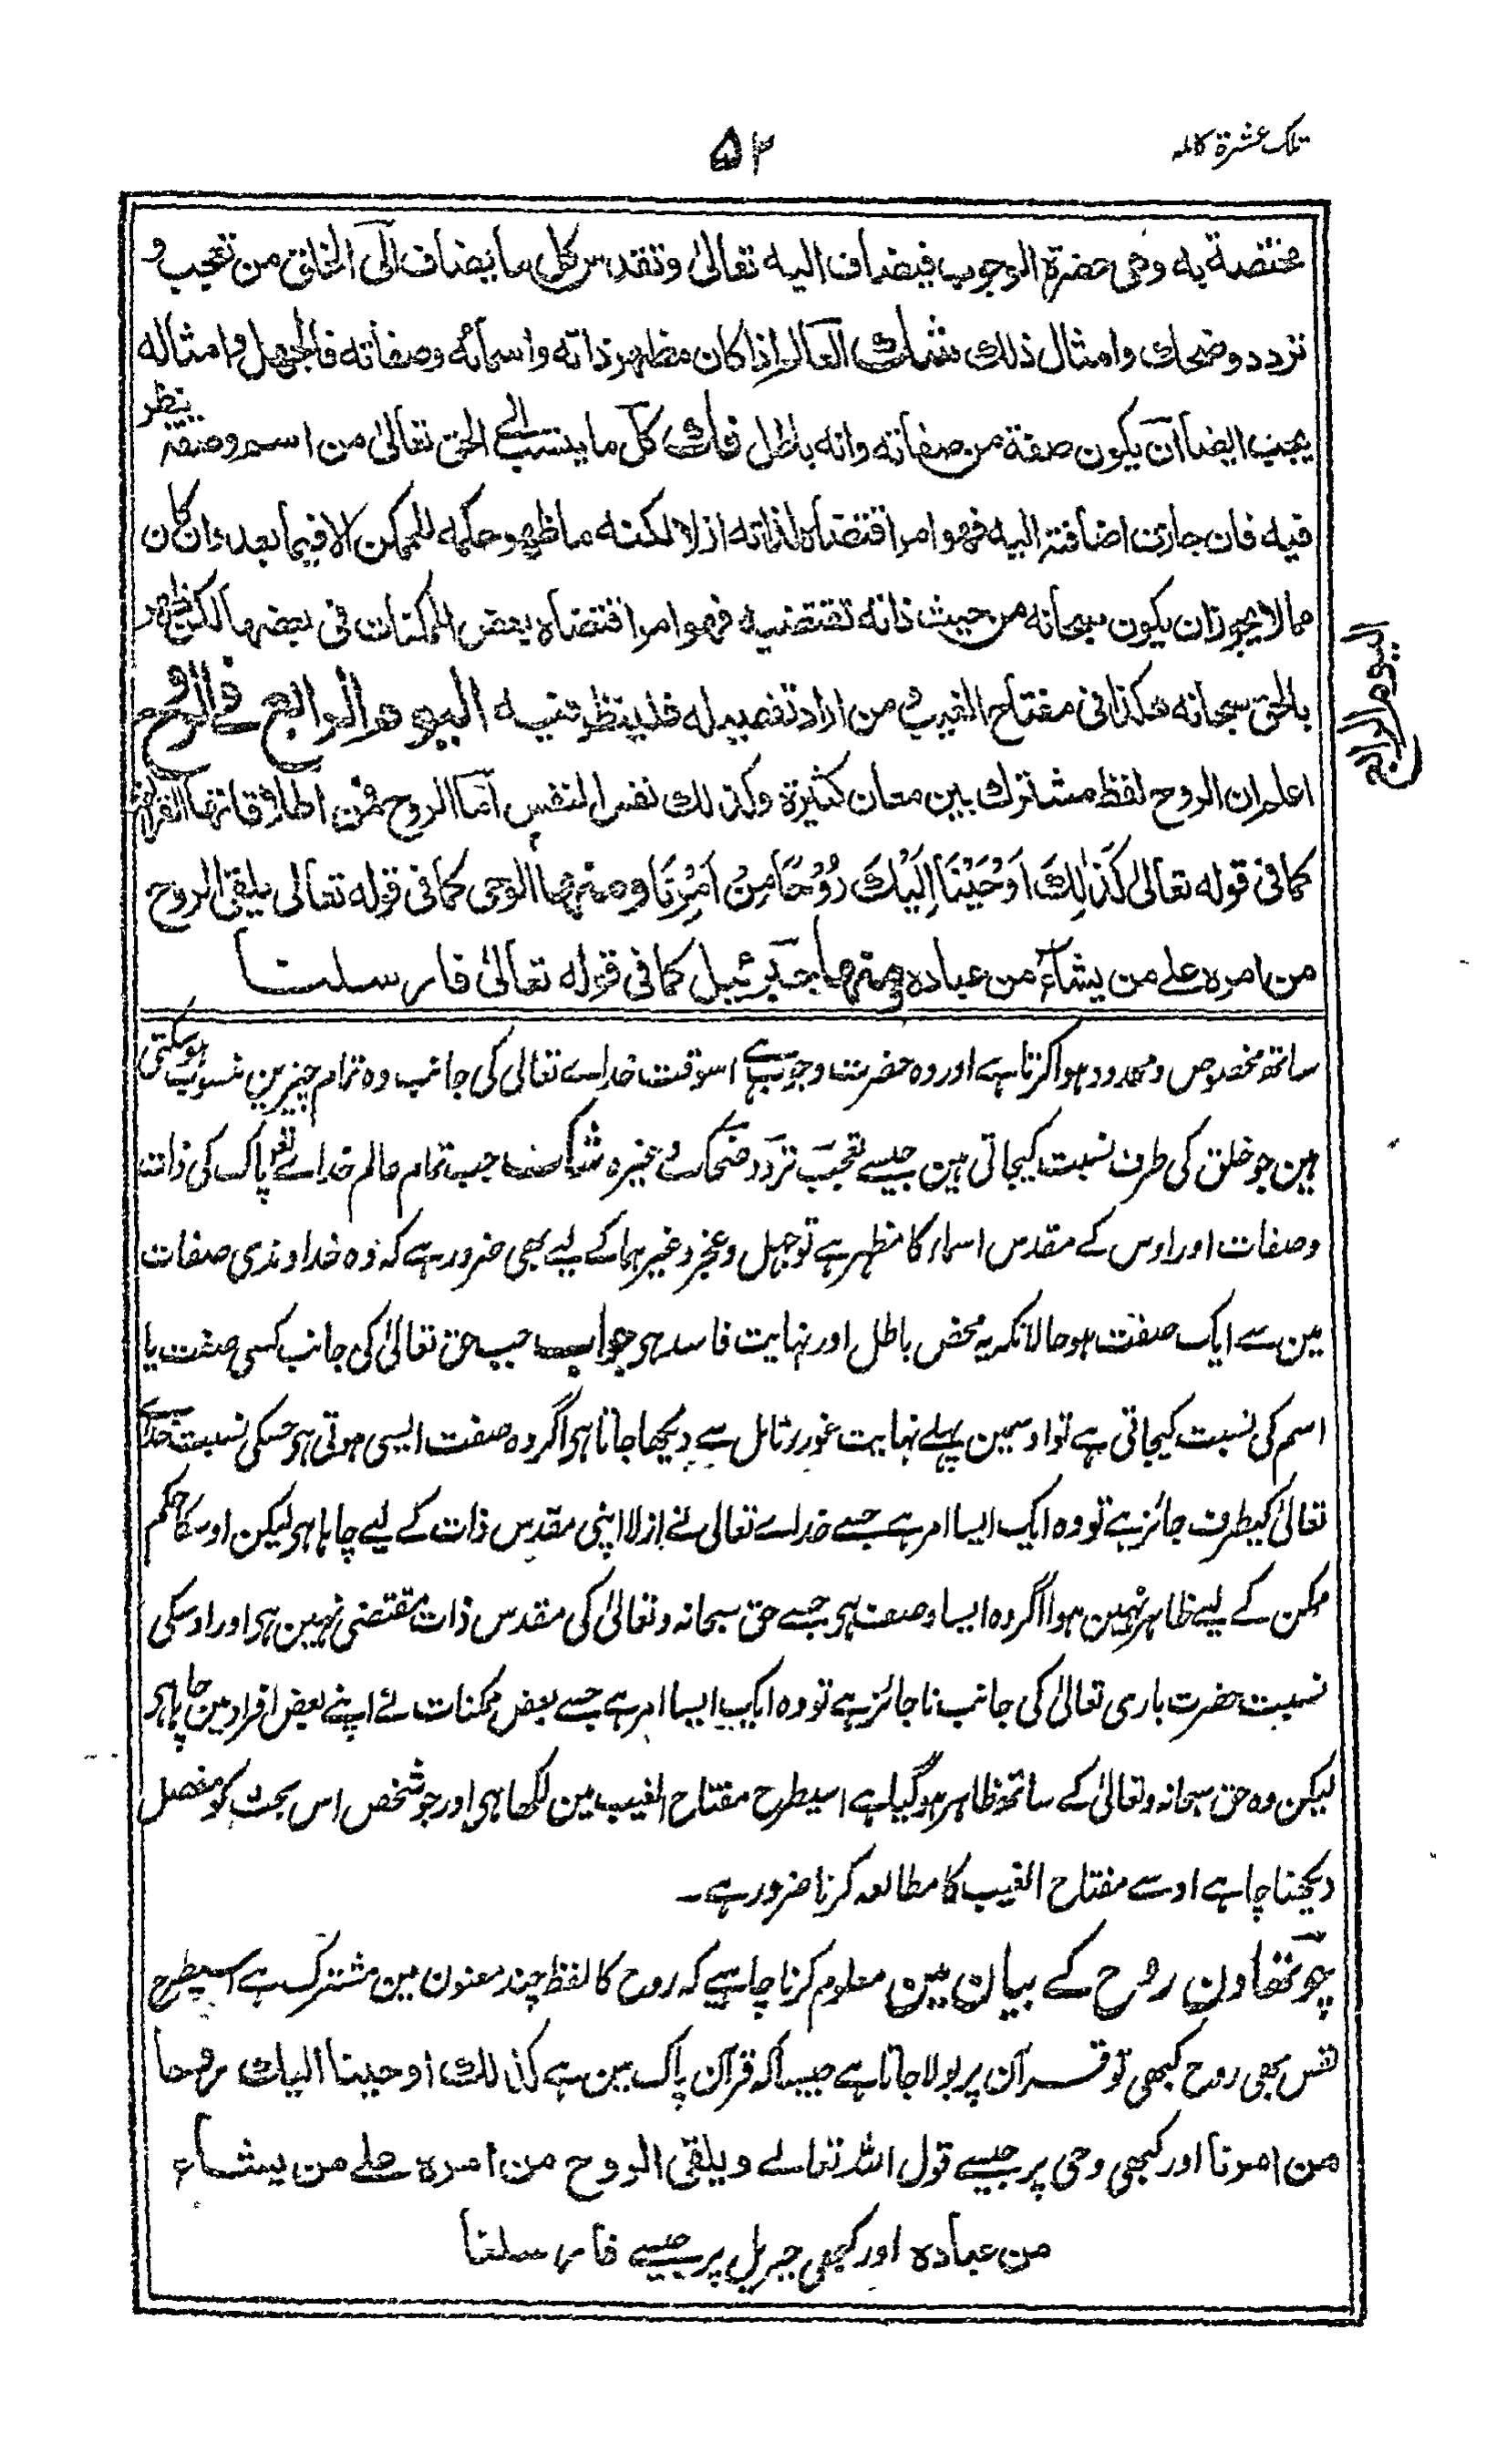 تلک عشرة کاملہ
۵۲
مختصة به وهى حضرة الوجوب فيضاف اليه تعالىٰ وتقدس كل ما يضاف الى الخلق من تعجب و
تردد وضحك وامثال ذلك شك العالم اذا كان مظهر ذاته واسمائه وصفاته فالجهل وامثاله
يجب ايضا ان يكون صفة من صفاته وانه باطل فك كل ما ينسب الى الحق تعالىٰ من اسم وصفة ينظر
فيه فان جازت اضافته اليه فهو امر اقتضاه لذاته ازلا لكنه ما ظهر حكمه للممكن الا فيما بعد وان كان
مما لا يجوز ان يكون سبحانه من حيث ذاته تقتضيه فهو امر اقتضاه بعض الممكنات فى بعضها لكن ظهر
بالحق سبحانه هكذا فى مفتاح الغيب ومن اراد تفصيله فلينظر فيه اليوم الرابع فى الروح
اليوم الرابع
اعلم ان الروح لفظ مشترك بين معان كثيرة وكذلك نفس النفس اما الروح فمن اطلاقاتها القرآن
كما فى قوله تعالى كَذٰلِكَ اَوْحَيْنَا اِلَيْكَ رُوْحًا مِنْ اَمْرِنَا ومنها الوحى كما فى قوله تعالى يلقى الروح
من امره على من يشاء من عباده ومنها جبرئيل كما فى قوله تعالىٰ فارسلنا
ساتھ مخصوص ومحدود ہوا کرتا ہے اور وہ حضرت وجوب ہے اسوقت خداے تعالی کی جانب وہ تمام چیزین منسوب ہوسکتی
ہین جو خلق کی طرف نسبت کیجاتی ہین جیسے تعجب تردد ضحک وغیرہ شک جب تمام عالم خداے پاک کی ذات
وصفات اور اوس کے مقدس اسماء کا مظہر ہے تو جہل وعجز وغیرہما کے لیے بھی ضرور ہے کہ وہ خداوندی صفات
مین سے ایک صفت ہو حالانکہ یہ محض باطل اور نہایت فاسد ہی جواب جب حق تعالیٰ کی جانب کسی صفت یا
اسم کی نسبت کیجاتی ہے تو اوسمین پہلے نہایت غور وتامل سے دیکھا جاتا ہی اگر وہ صفت ایسی ہوتی ہی جسکی نسبت خداے
تعالیٰ کیطرف جائز ہے تو وہ ایک ایسا امر ہے جسے خداے تعالی نے ازلا اپنی مقدس ذات کے لیے چاہا ہی لیکن اوسکا حکم
ممکن کے لیے ظاہر نہین ہوا اگر وہ ایسا وصف ہی جسے حق سبحانہ وتعالیٰ کی مقدس ذات مقتضی نہین ہی اور اوسکی
نسبت حضرت باری تعالیٰ کی جانب ناجائز ہے تو وہ ایک ایسا امر ہے جسے بعض ممکنات نے اپنے بعض افراد مین چاہا ہی
لیکن وہ حق سبحانہ وتعالیٰ کے ساتھ ظاہر ہوگیا ہے اسیطرح مفتاح الغیب مین لکھا ہی اور جو شخص اس بحث کو مفصل
دیکھنا چاہے اوسے مفتاح الغیب کا مطالعہ کرنا ضرور ہے۔
چوتھا دن روح کے بیان مین معلوم کرنا چاہیے کہ روح کا لفظ چند معنون مین مشترک ہے اسیطرح
نفس بھی روح کبھی تو قرآن پر بولا جاتا ہے جیسا کہ قرآن پاک مین ہے كذلك اوحينا اليك روحا
من امرنا اور کبھی وحی پر جیسے قول اللہ تعالے ويلقى الروح من امره على من يشاء
من عباده اور کبھی جبریل پر جیسے فارسلنا